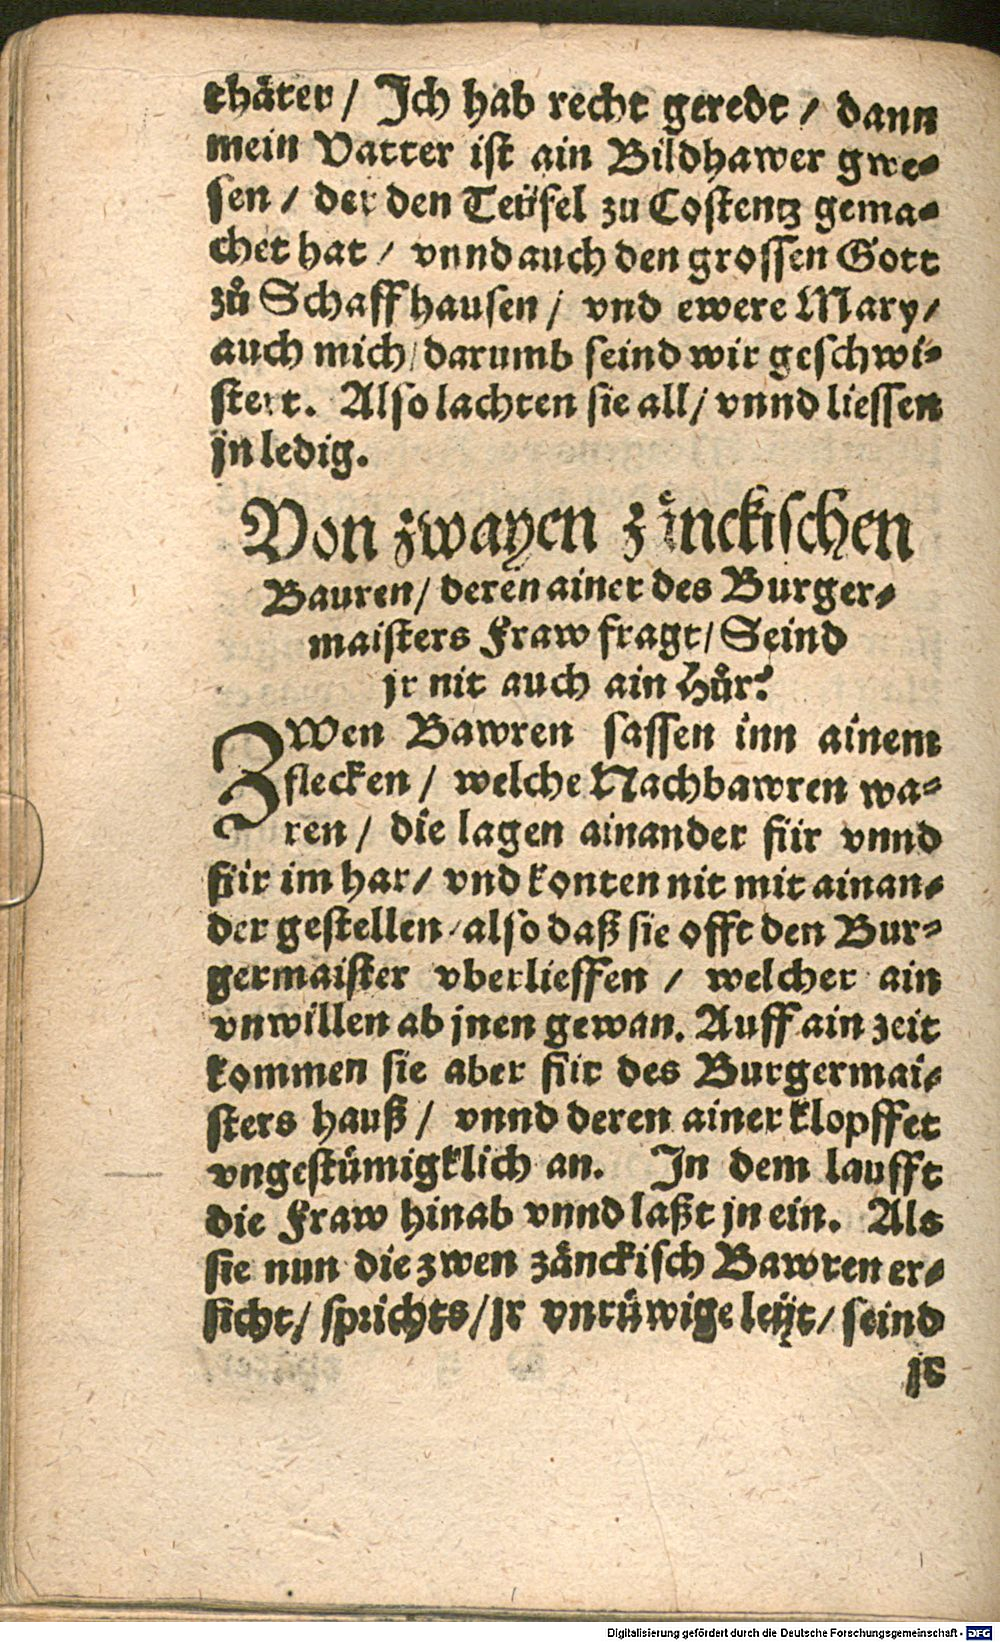 thäter / Ich hab recht geredt / dann
mein Vatter ist ain Bildhawer gwe⸗
sen / der den Teüfel zu Costentz gema⸗
chet hat / vnnd auch den grossen Gott
zů Schaffhausen / vnd ewere Mary /
auch mich / darumb seind wir geschwi⸗
stert. Also lachten sie all / vnnd liessen
jn ledig.
Von zwayen zänckischen
Bauren / deren ainer des Burger⸗
maisters Fraw fragt / Seind
jr nit auch ain Hůr?
ZWen Bawren sassen inn ainem
flecken / welche Nachbawren wa⸗
ren / die lagen ainander für vnnd
für im har / vnd konten nit mit ainan⸗
der gestellen / also daß sie offt den Bur⸗
germaister vberlieffen / welcher ain
vnwillen ab jnen gewan. Auff ain zeit
kommen sie aber für des Burgermai⸗
sters hauß / vnnd deren ainer klopffet
vngestümigklich an. In dem laufft
die Fraw hinab vnnd laßt jn ein. Als
sie nun die zwen zänckisch Bawren er⸗
sicht / sprichts / Jr vnrüwige leüt / seind
jr
Digitalisierung gefördert durch die Deutsche Forschungsgemeinschaft - DFG